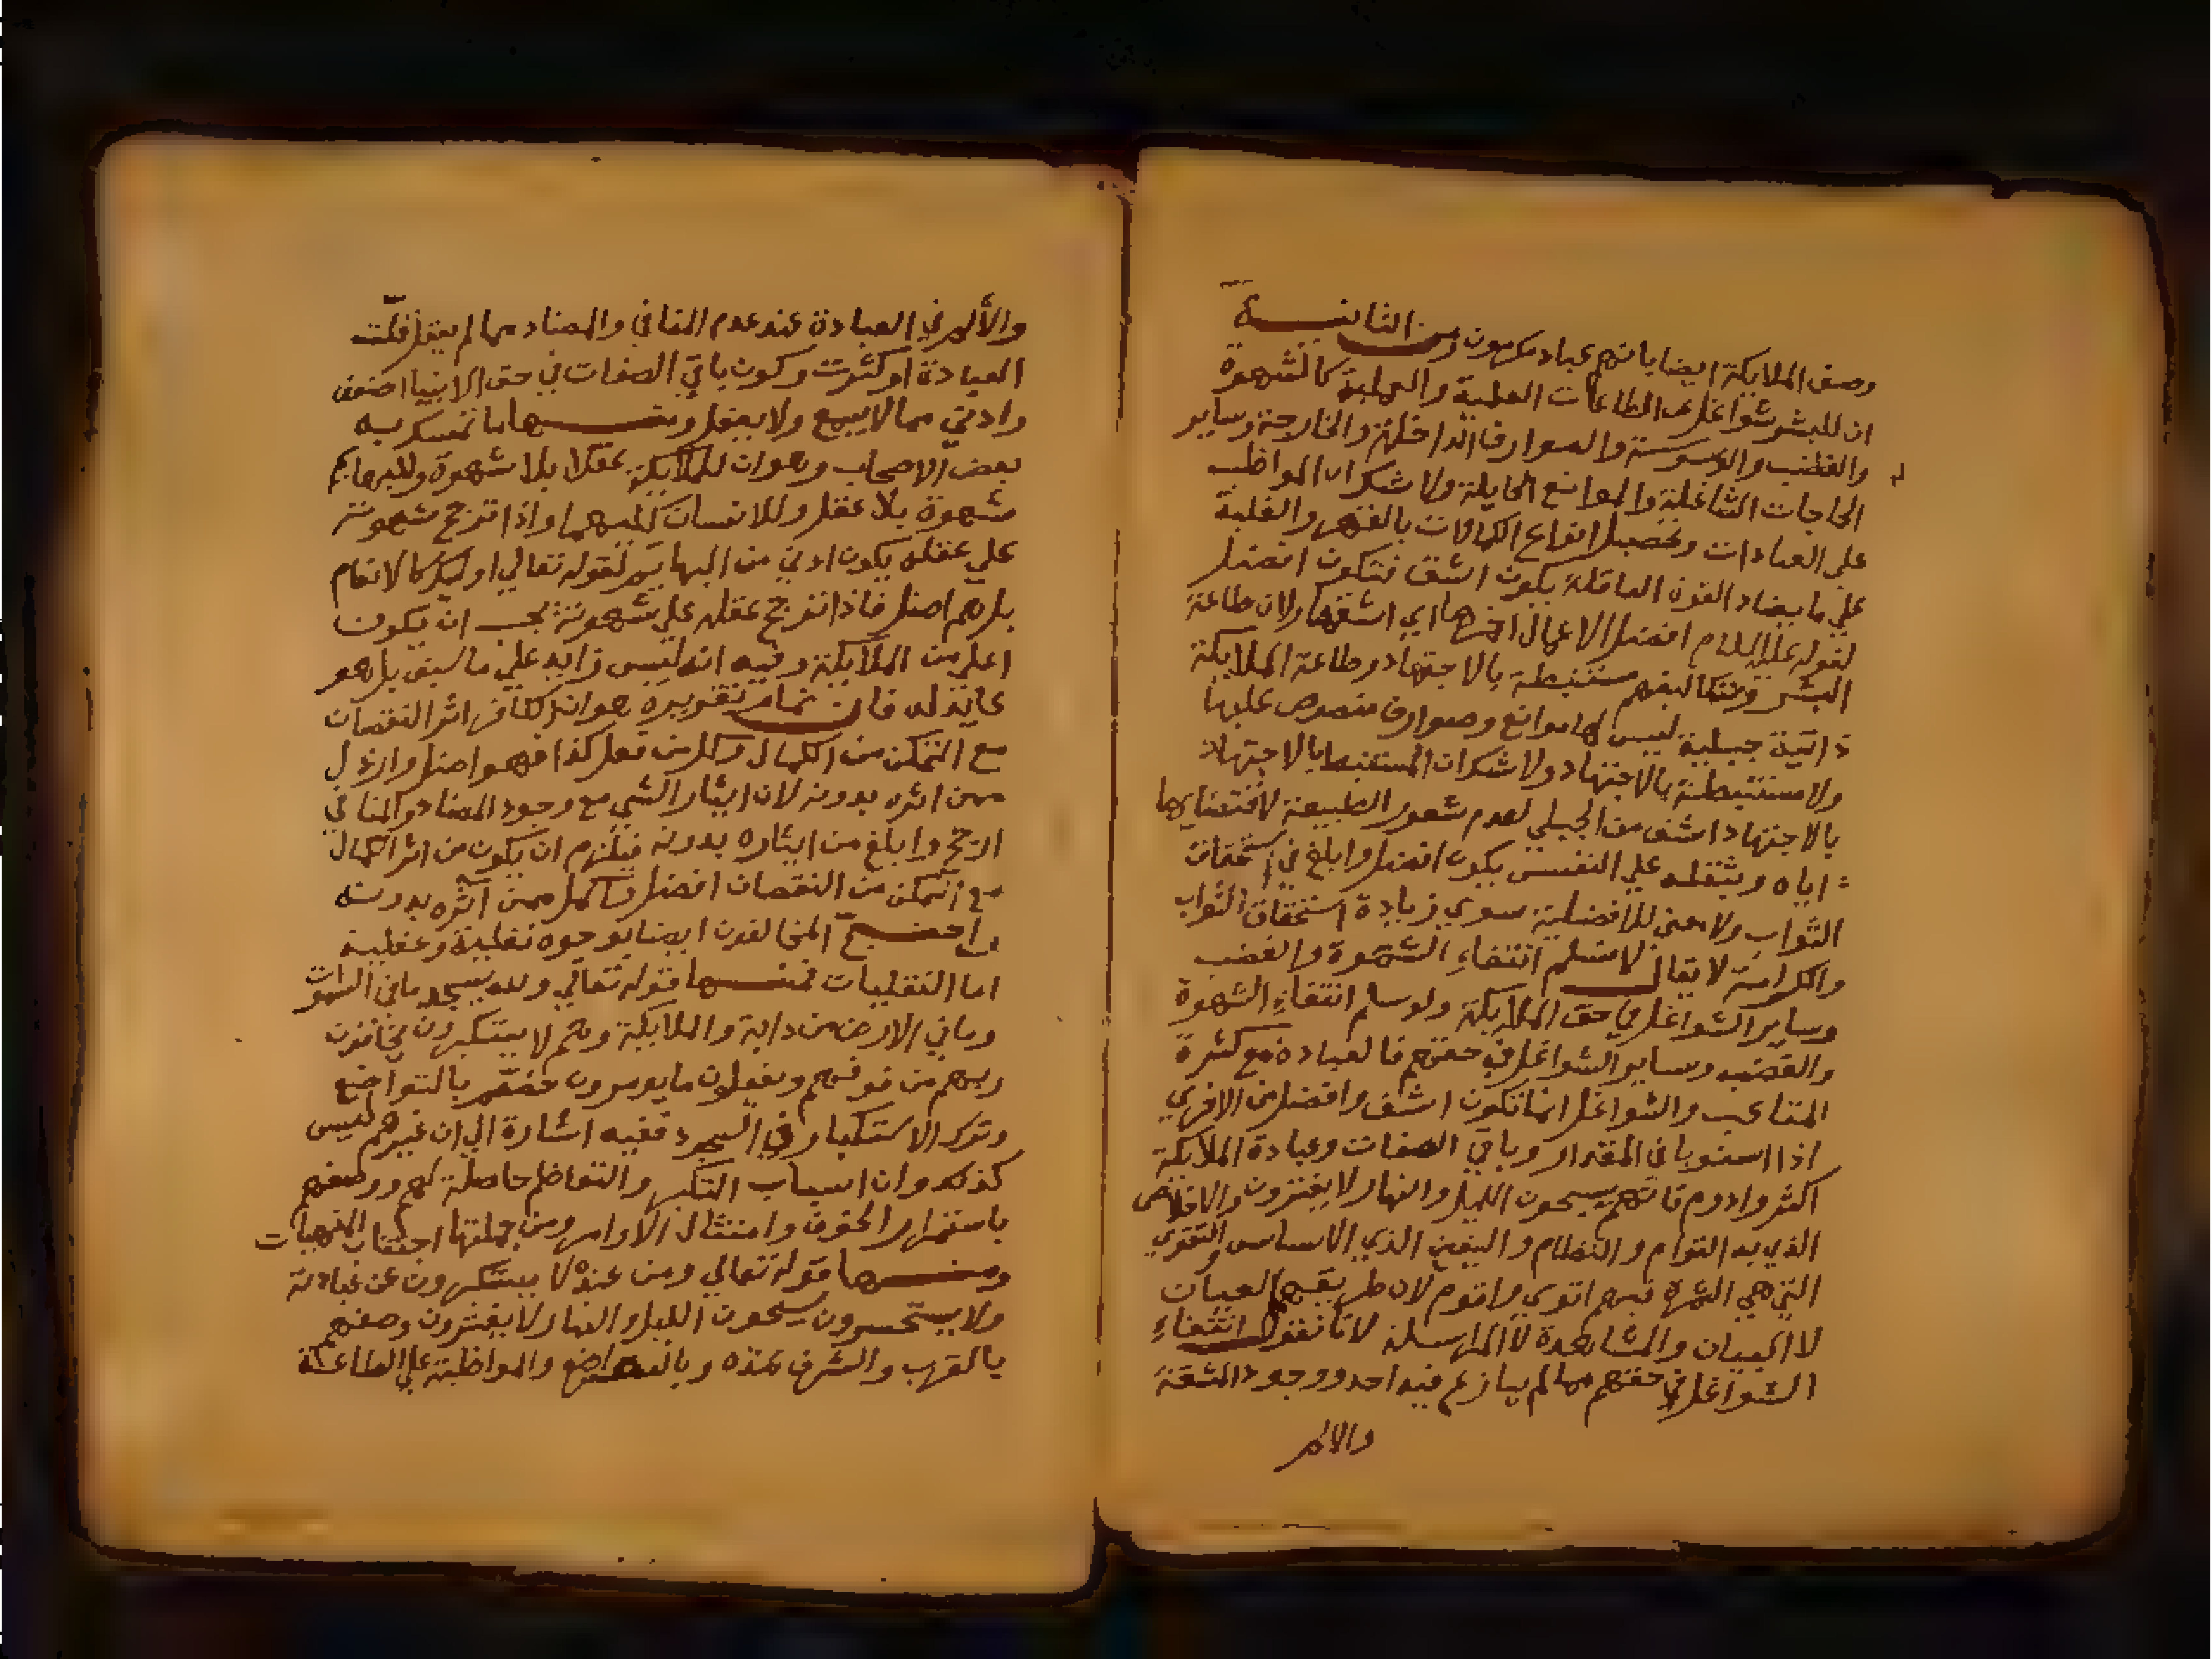 وصف الملايكة ايضا بانهم عباد مكرمون ومن الثانية
ان للبشر شواغل عن الطاعات العلمية والعملية كالشهوة
والغضب والوسوسة والصوارف الداخلة والخارجة وساير
الحاجات الشاغلة والموانع الحايلة ولا شك ان المواظبة
على العبادات وتحصيل انواع الكمالات بالقهر والغلبة
علي ما يضاد القوة العاقلة يكون اشق فتكون افضل
لقوله عليه السلام افضل الاعمال احمزها اي اشقها ولان طاعة
البشر وتكاليفهم مستنبطة بالاجتهاد وطاعة الملايكة
ذاتية جبيلية ليس لها موانع وصوارف منصوص عليها
ولا مستنبطة بالاجتهاد ولا شك ان المستنبط بالاجتهاد
بالاجتهاد اشق من الجبيلي لعدم شعور الطبيعة لاقتضايها
اياه وثقله علي النفس يكون افضل وابلغ في استحقاق
الثواب ولا معنى للافضلية سوي زيادة استحقاق الثواب
والكرامة لا يقال لا نسلم انتفاء الشهوة والغضب
وساير الشواغل في حق الملايكة ولو سلم انتفاء الشهوة
والغضب وساير الشواغل في حقهم فالعبادة مع كثرة
المتاعب والشواغل انما تكون اشق وافضل من الاخري
اذا استويا في المقدار وباقي الصفات وعبادة الملايكة
اكثر وادوم فانهم يسبحون الليل والنهار لا يفترون والاخلاص
الذي به القوام والنظام واليقين الذي الاساس والتقوي
التي هي الثمرة فيهم اقوي واقوم لان طريقهم العيان
لا البيان والمشاهدة لا المراسلة لانا نقول انتفاء
الشواغل في حقهم مما لم ينازع فيه احد ووجود المشقة
والالم
والألم في العبادة عند عدم المنافي والمضاد مما لم يعقل قلت
العبادة او كثرت وكون باقي الصفات في حق الانبيا اضعف
وادني مما لا يسمع ولا يعقل ومنها ما تمسك به
بعض الاصحاب وهو ان للملايكة عقلا بلا شهوة وللبهايم
شهوة بلا عقل وللانسان كليهما واذا ترجح شهوته
علي عقله يكون ادني من البهايم لقوله تعالي اوليك كالانعام
بل هم اضل فاذا ترجح عقله علي شهوته يجب ان يكون
اعلي من الملايكة وفيه انه ليس زايد علي ما سبق بل هو
عايد له فان تمام تقريره هو ان الكافر اثر النقصان
مع التمكن من الكمال وكل من فعل كذا فهو اضل وارذل
ممن اثره بدونه لان ايثار الشي مع وجود المضاد والمنافي
ارجح وابلغ من ايثاره بدونه فيلزم ان يكون من اثر الكمال
مع التمكن من النقصان افضل واكمل ممن آثره بدونه
واحتج المخالفون ايضا بوجوه نقلية وعقلية
اما النقليات فمنها قوله تعالي ولله يسجد ما في السموات
وما في الارض من دابة والملايكة وهم لا يستكبرون يخافون
ربهم من فوقهم ويفعلون ما يومرون خصهم بالتواضع
وترك الاستكبار في السجود ففيه اشارة الي ان غيرهم ليس
كذلك وان اسباب التكبر والتعاظم حاصلة لهم ووصفهم
باستمرار الخوف وامتثال الاوامر ومن جملتها اجتناب المنهيات
ومنها قوله تعالي ومن عنده لا يستكبرون عن عبادته
ولا يستحسرون يسبحون الليل والنهار لا يفترون وصفهم
بالقرب والشرف عنده وبالتواضع والمواظبة علي الطاعة